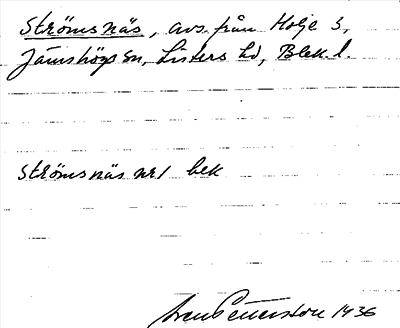 Strömsnäs, avs. från Holje 3,
Jämshögs sn, Listers hd, Blek. l.
Strömsnäs nr 1 bek
Sven Petersson 1936